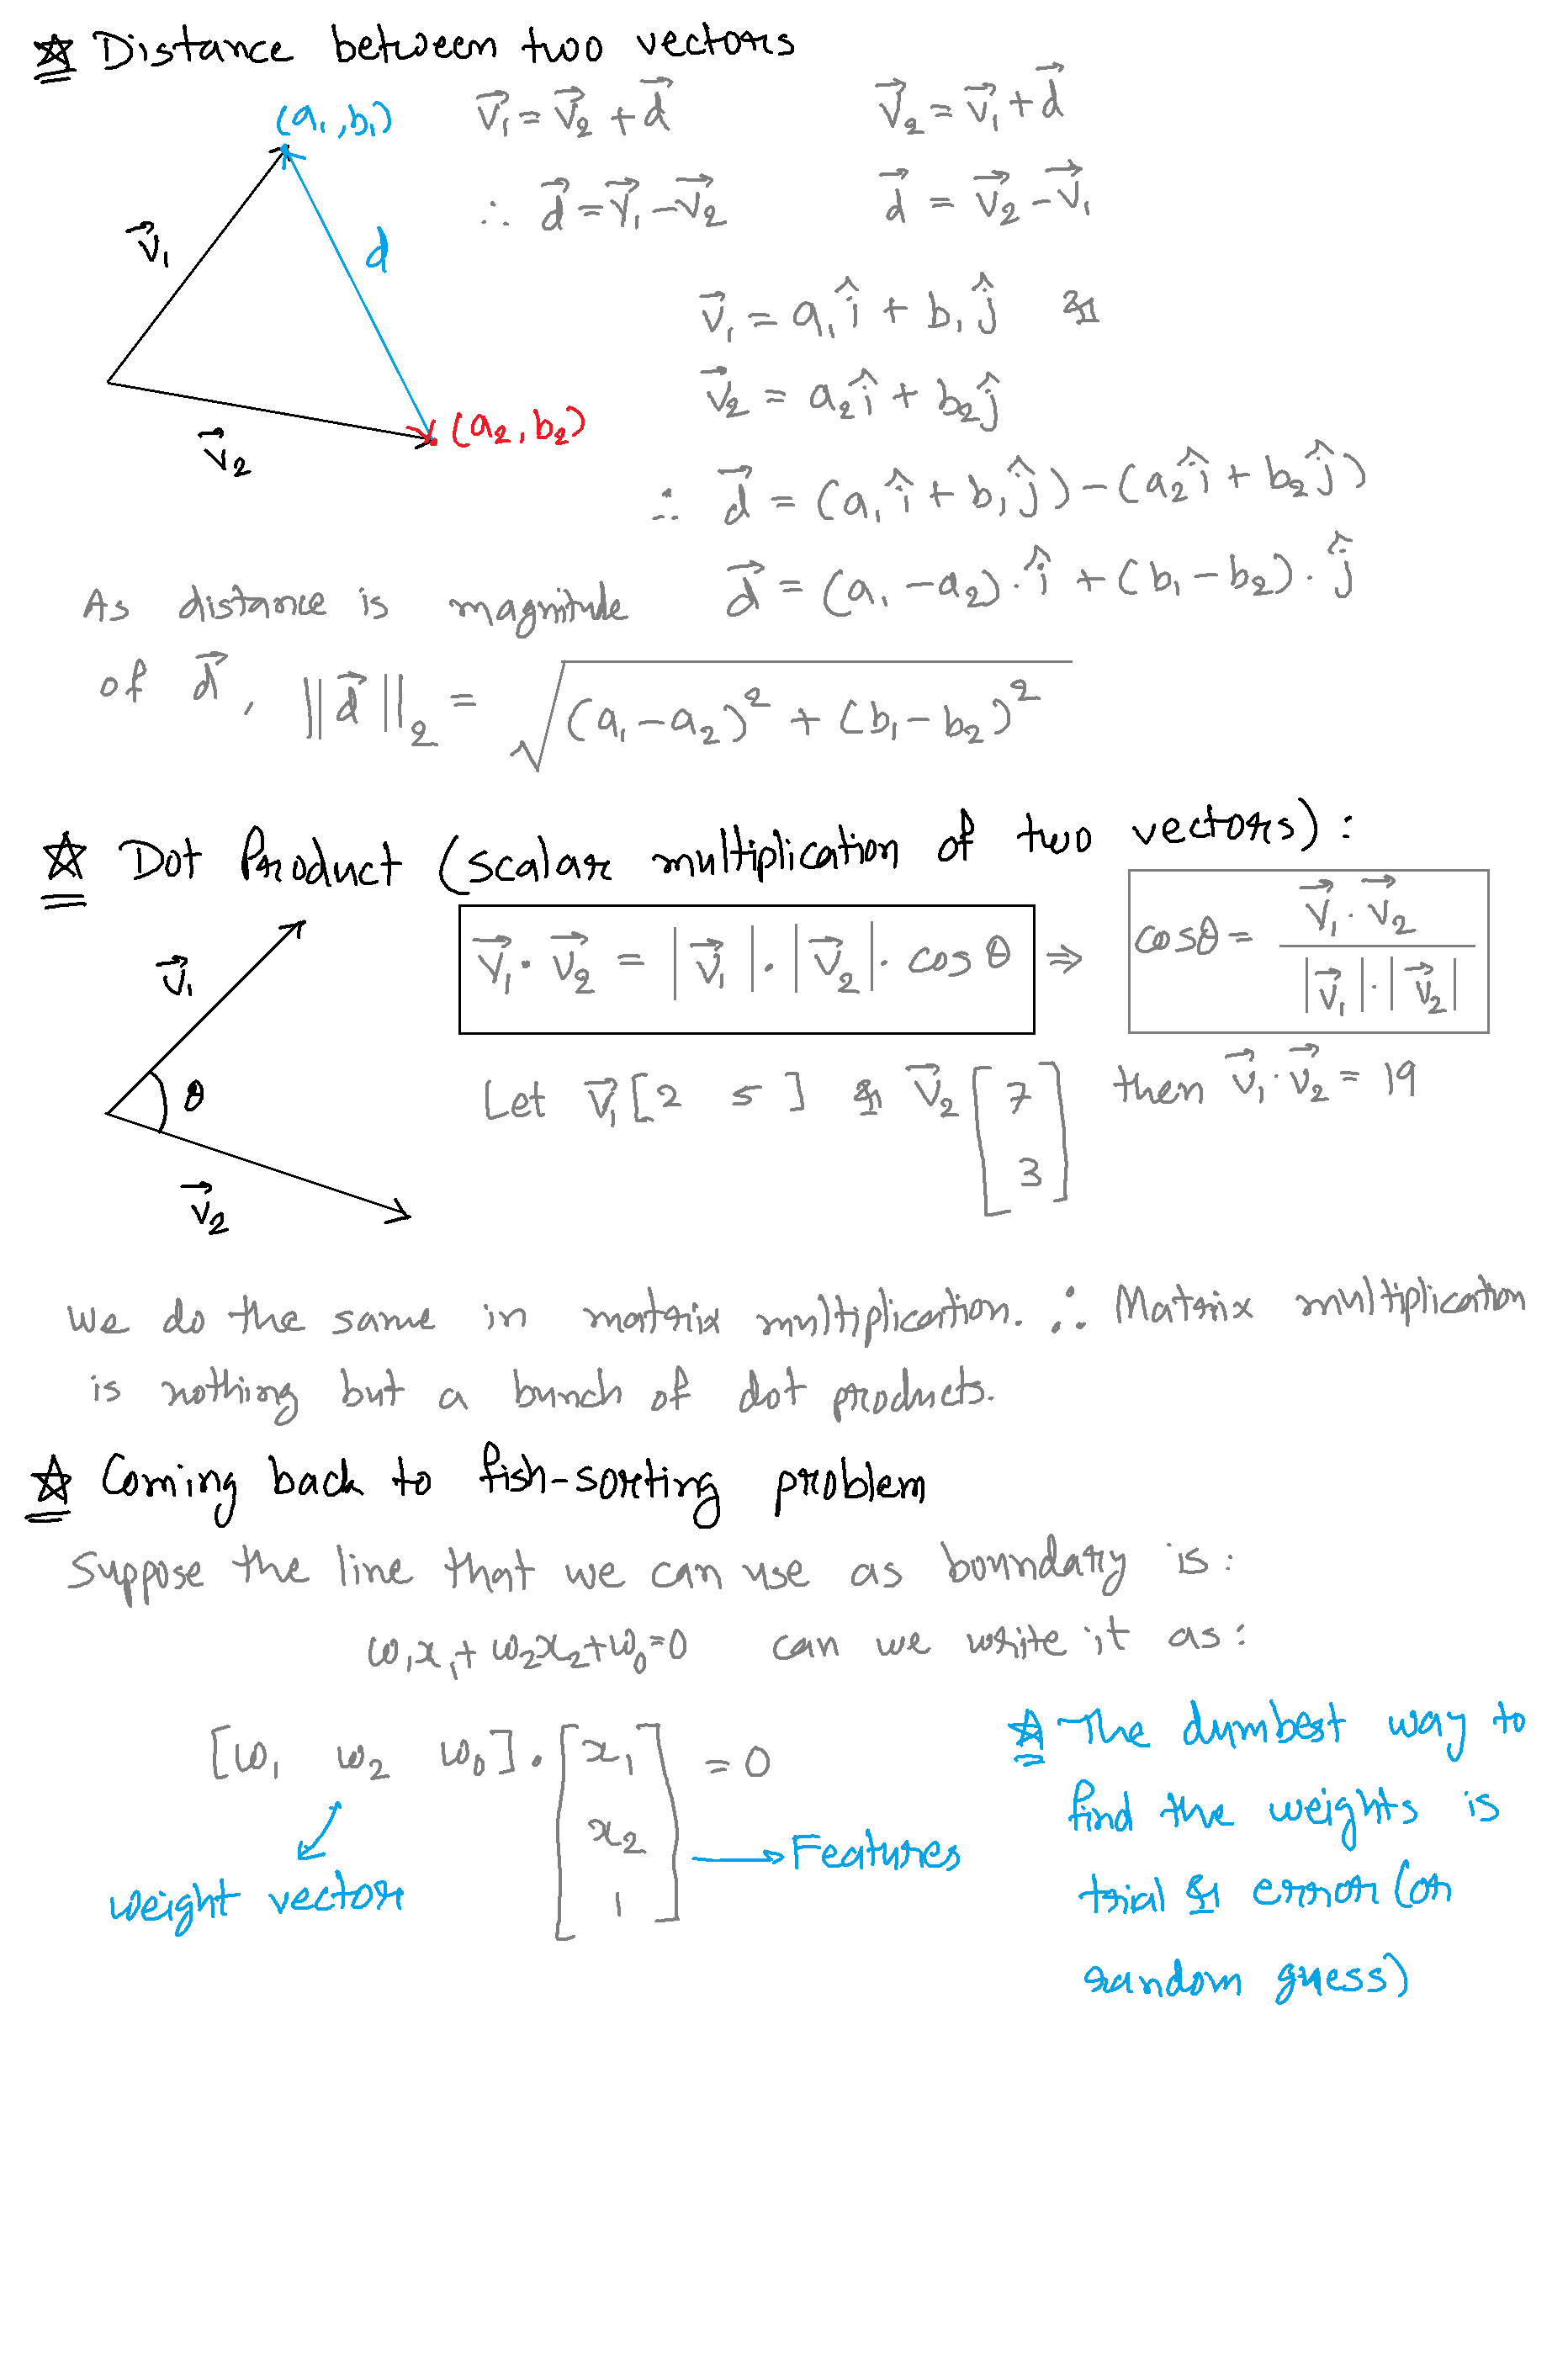 ☆ Distance between two vectors
(a₁,b₁)
v⃗₁ = v⃗₂ + d⃗
v⃗₂ = v⃗₁ + d⃗
∴ d⃗ = v⃗₁ - v⃗₂
d⃗ = v⃗₂ - v⃗₁
v⃗₁
d
v⃗₁ = a₁î + b₁ĵ &
v⃗₂ = a₂î + b₂ĵ
(a₂,b₂)
v⃗₂
∴ d⃗ = (a₁î + b₁ĵ) - (a₂î + b₂ĵ)
d⃗ = (a₁ - a₂).î + (b₁ - b₂).ĵ
As distance is magnitude
of d⃗, ||d⃗||₂ = √((a₁-a₂)² + (b₁-b₂)²)
☆ Dot Product (scalar multiplication of two vectors):
v⃗₁
v⃗₁·v⃗₂ = |v⃗₁|·|v⃗₂|·cosθ ⇒ cosθ = v⃗₁·v⃗₂ / |v⃗₁|·|v⃗₂|
θ
v⃗₂
Let v⃗₁ [2 5] & v⃗₂ [7 3] then v⃗₁·v⃗₂ = 19
We do the same in matrix multiplication. ∴ Matrix multiplication
is nothing but a bunch of dot products.
☆ Coming back to fish-sorting problem
Suppose the line that we can use as boundary is:
w₁x₁+w₂x₂+w₀=0 can we write it as:
[w₁ w₂ w₀]·[x₁ x₂ 1] = 0
weight vector
→ Features
☆ The dumbest way to
find the weights is
trial & error (or
random guess)